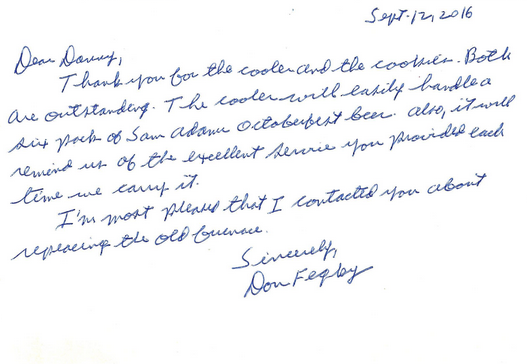 Sept. 12, 2016
Dear Danny,
Thank you for the cooler and the cookies. Both
are outstanding. The cooler will easily handle a
six pack of Sam Adams Octoberfest beer. Also, it will
remind us of the excellent service you provided each
time we carry it.
I'm most pleased that I contacted you about
replacing the old furnace.
Sincerely,
Don